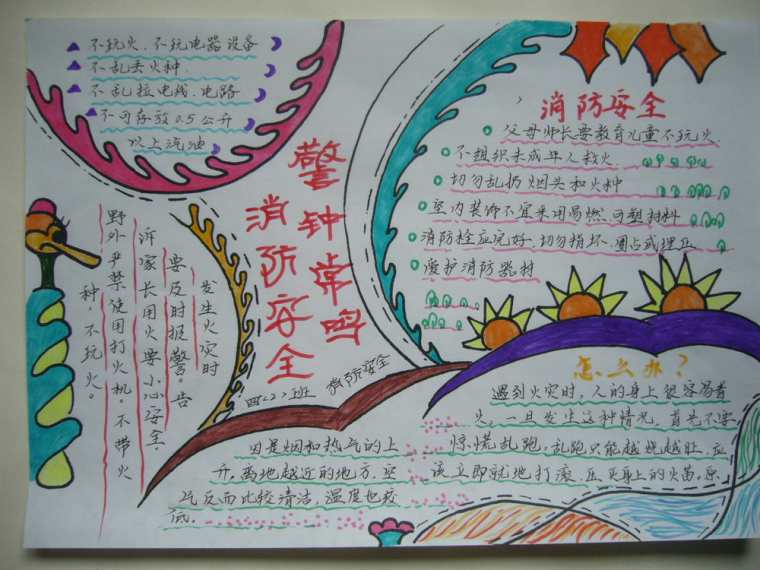 不玩火、不玩电器设备
不乱丢火种.
不乱拉电线、电路
不可存放0.5公升
以上汽油
警钟常鸣
消防安全
四<2>班
消防安全
消防安全
父母师长要教育儿童不玩火
不组织未成年人救火.
切勿乱扔烟头和火种
室内装饰不宜采用易燃、可塑材料
消防栓应完好、切勿损坏、圈占或埋压
爱护消防器材
发生火灾时
要及时报警。告
诉家长用火要小心安全.
野外严禁使用打火机。不带火
种，不玩火。
因是烟和热气的上
升。离地越近的地方，空
气反而比较清洁，温度也较
低。
怎么办？
遇到火灾时，人的身上很容易着
火。一旦发生这种情况，首先不要
惊慌乱跑。乱跑只能越烧越旺、应
该立即就地打滚、压灭身上的火苗。原